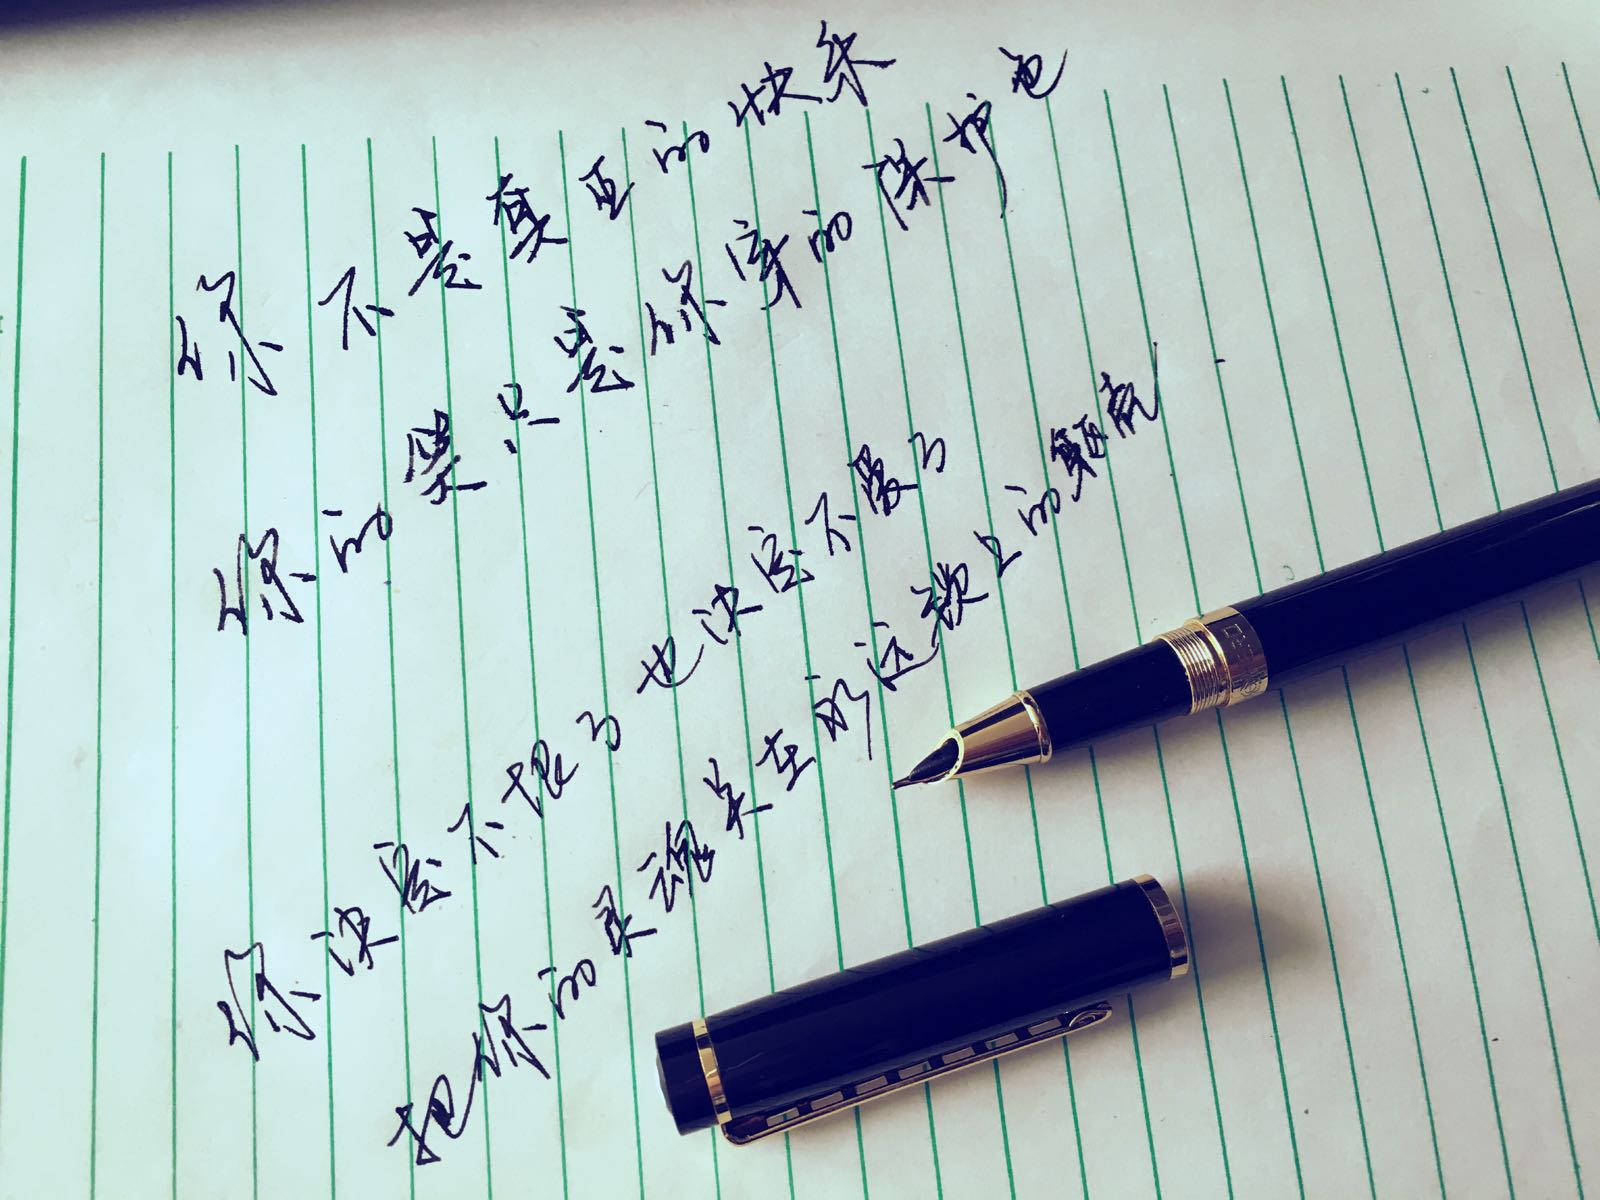 你不是真正的快乐
你的笑只是你穿的保护色
你决定不恨了也决定不爱了
把你的灵魂关在永远锁上的躯壳